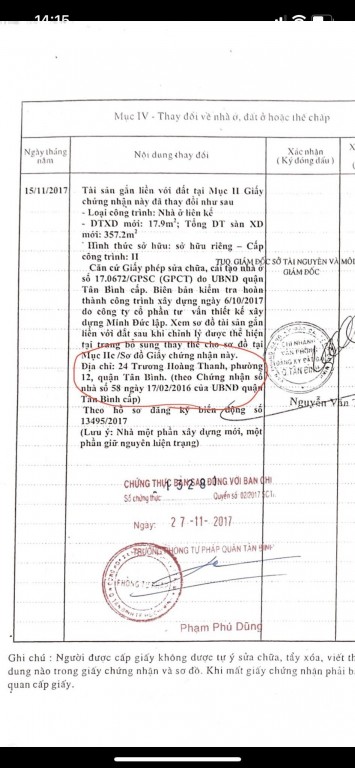 14:15
Mục IV - Thay đổi về nhà ở, đất ở hoặc thế chấp
Ngày tháng năm
Nội dung thay đổi
Xác nhận
( Ký đóng dấu )
15/11/2017
Tài sản gắn liền với đất tại Mục II Giấy
chứng nhận này đã thay đổi như sau
- Loại công trình: Nhà ở liên kế
- DTXD mới: 17.9m²; Tổng DT sàn XD
mới: 357.2m²
- Hình thức sở hữu: sở hữu riêng – Cấp
công trình: II
TUQ. GIÁM ĐỐC SỞ TÀI NGUYÊN VÀ MÔI
GIÁM ĐỐC
Căn cứ Giấy phép sửa chữa, cải tạo nhà ở
số 17.0672/GPSC (GPCT) do UBND quận
Tân Bình cấp. Biên bản kiểm tra hoàn
thành công trình xây dựng ngày 6/10/2017
do công ty cổ phần tư vấn thiết kế xây
dựng Minh Đức lập. Xem sơ đồ tài sản gắn
liền với đất sau khi chỉnh lý được thể hiện
tại trang bổ sung thay thế cho sơ đồ tại
Mục IIc /Sơ đồ Giấy chứng nhận này.
CHI NHÁNH
VĂN PHÒNG
ĐĂNG KÝ ĐẤT ĐAI
Q. TÂN BÌNH
Địa chỉ: 24 Trương Hoàng Thanh, phường
12, quận Tân Bình. (theo Chứng nhận số
nhà số 58 ngày 17/02/2016 của UBND quận
Tân Bình cấp)
Nguyễn Văn
Theo hồ sơ đăng ký biến động số
13495/2017
(Lưu ý: Nhà một phần xây dựng mới, một
phần giữ nguyên hiện trạng)
CHỨNG THỰC BẢN SAO ĐÚNG VỚI BẢN CHÍ
Số chứng thực
Quyển số 02/2017 SCT/
Ngày: 27-11-2017
TRƯỞNG PHÒNG TƯ PHÁP QUẬN TÂN BÌNH
PHÒNG TƯ
Phạm Phú Dũng
Ghi chú : Người được cấp giấy không được tự ý sửa chữa, tẩy xóa, viết th
dung nào trong giấy chứng nhận và sơ đồ. Khi mất giấy chứng nhận phải b
quan cấp giấy.